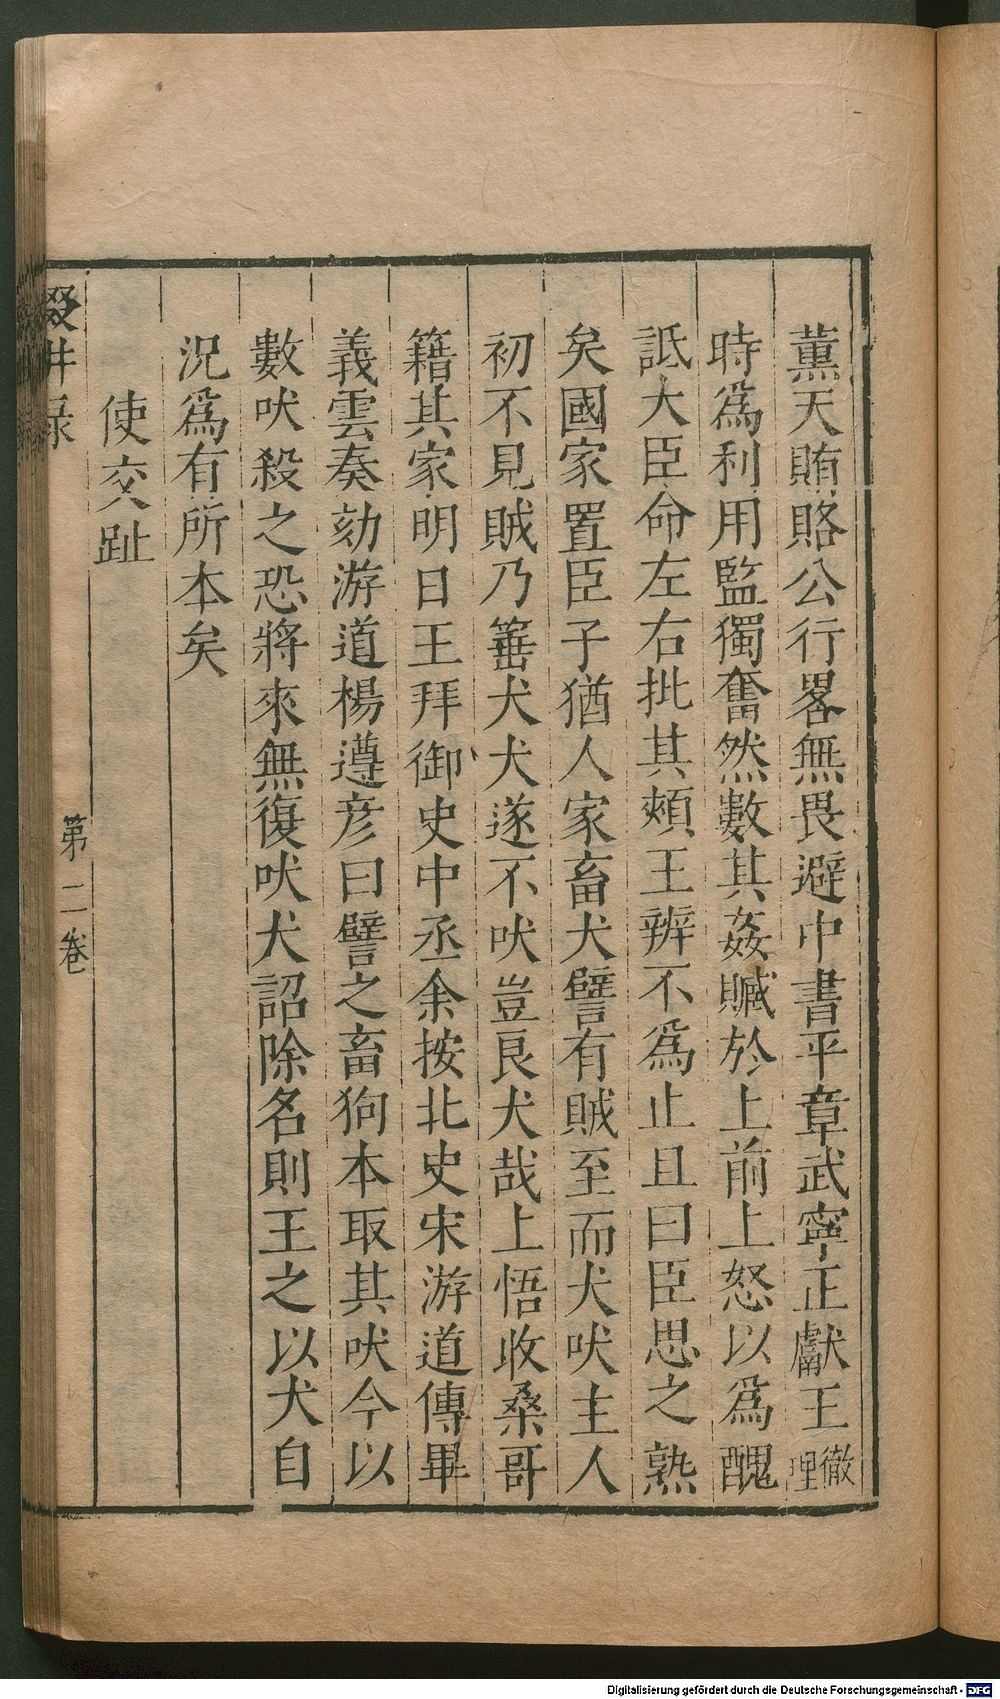 薰天賄賂公行畧無畏避中書平章武寧正獻王徹理
時爲利用監獨奮然數其姦贓於上前上怒以爲醜
詆大臣命左右批其頰王辨不爲止且曰臣思之熟
矣國家置臣子猶人家畜犬譬有賊至而犬吠主人
初不見賊乃箠犬犬遂不吠豈良犬哉上悟收桑哥
籍其家明日王拜御史中丞余按北史宋游道傳畢
義雲奏劾游道楊遵彥曰譬之畜狗本取其吠今以
數吠殺之恐將來無復吠犬詔除名則王之以犬自
況爲有所本矣
使交趾
第二卷
Digitalisierung gefördert durch die Deutsche Forschungsgemeinschaft - DFG